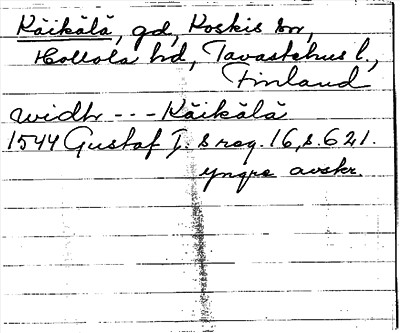 Käikälä, gd, Koskis sn,
Hollola hd, Tavastehus l.,
Finland
widh --- Käikälä
1544 Gustaf I. s reg. 16, s. 621.
yngre avskr.